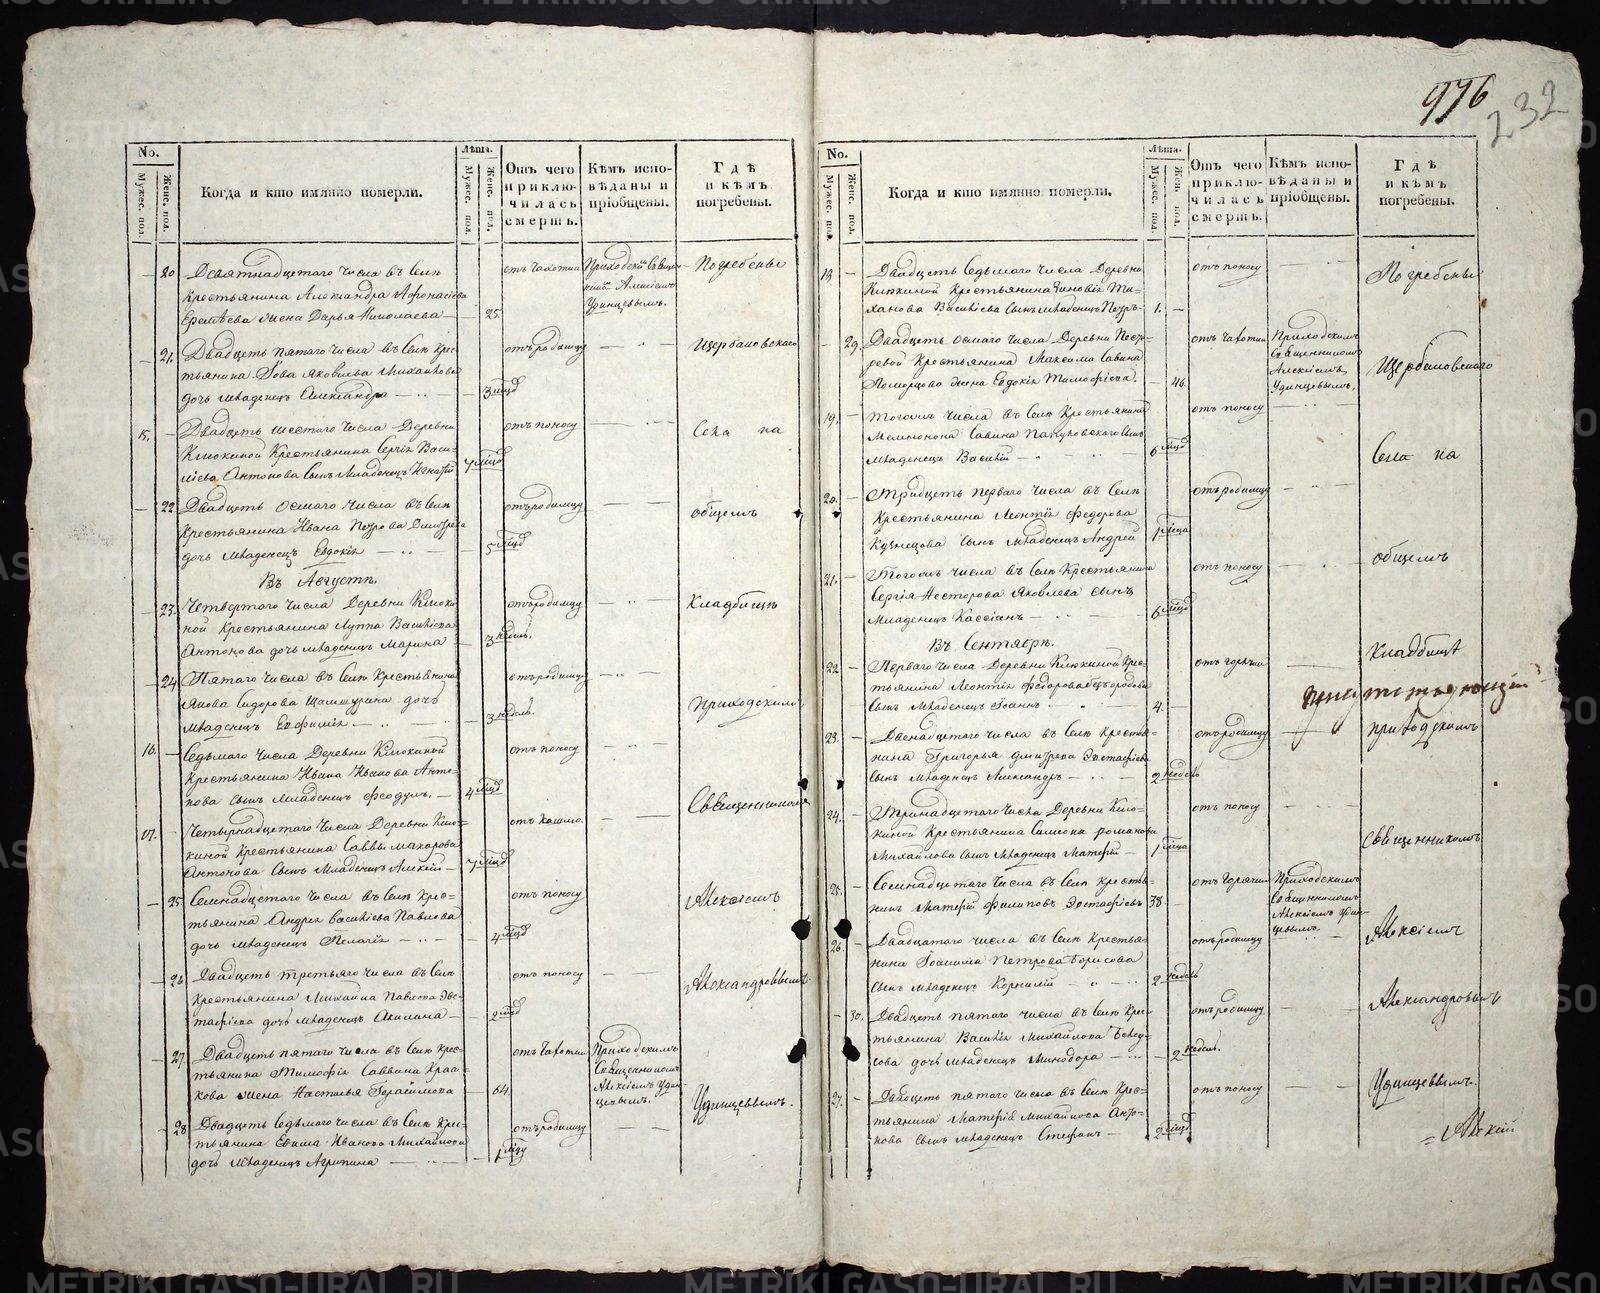 976
232
No.
Мужес. пол.
Женс. пол.
Когда и кто имянно померли.
Лѣта.
Мужес. пол.
Женс. пол.
Отъ чего приключилась смерть.
Кѣмъ исповѣданы и пріобщены.
Гдѣ и кѣмъ погребены.
20 Девятнадцатаго числа въ селѣ
крестьянина Александра Афонасіева
жена Дарья Николаева 25
отъ чахотки
Погребены
21. Двадцать пятаго числа въ селѣ крес
тьянина Іова Яковлева Михайлова
дочь младенецъ Александра 3 мѣсц
отъ родимцу
Щербаковскаго
15. Двадцать шестаго числа Деревни
Клюкиной Крестьянина Сергія Васи-
лієва Антонова сынъ младенецъ Игнатій 7 мѣсц
отъ поносу
Села на
22 Двадцать осмаго числа въ селѣ
крестьянина Ивана Петрова
дочь младенецъ Евдокія 5 мѣсц
отъ родимцу
общемъ
Въ Августѣ.
23. Четвертаго числа Деревни Клюки
ной крестьянина Луппа Василіева
Антонова дочь младенецъ Марина 3 недель.
отъ родимцу
Кладбищѣ
24 Пятаго числа въ селѣ крестьянина
Якова Сидорова дочь
младенецъ Евфимія 3 недель.
отъ родимцу
приходскимъ
16. Седьмаго числа Деревни Клюкиной
Крестьянина Ивана Иванова Анто-
нова сынъ младенецъ Феодулъ. 4 мѣсц
отъ поносу
Священникомъ
17. Четырнадцатаго числа Деревни Клю-
киной крестьянина Саввы Макарова
Антонова сынъ младенецъ Алексій 7 мѣсц
отъ кашлю.
25 Семнадцатаго числа въ селѣ крес-
тьянина Андрея Василіева Павлова
дочь младенецъ Пелагія 4 мѣсц
отъ поносу
Алексіемъ
26 Двадцать третьяго числа въ селѣ
крестьянина Михайла Павлова Эвс-
тафіева дочь младенецъ Акилина 2 мѣсц
отъ поносу
Александровымъ
27 Двадцать пятаго числа въ селѣ крес-
тьянина Тимофія Саввина
жена Настасья Герасимова 64.
отъ чахотки
Приходскимъ
Священникомъ
Алексіемъ Удин
цевымъ.
Удинцевымъ.
28 Двадцать седьмаго числа въ селѣ крес-
тьянина Ивана Михайлова
дочь младенецъ Агрипина 1 мѣсцу
отъ родимцу
No.
Мужес. пол.
Женс. пол.
Когда и кто имянно померли.
Лѣта.
Мужес. пол.
Жен. пол.
Отъ чего приключилась смерть.
Кѣмъ исповѣданы и пріобщены.
Гдѣ и кѣмъ погребены.
18 Двадцать седьмаго числа Деревни
Клюкиной Крестьянина Зиновія Ти-
ханова Василіева сынъ младенецъ Петръ 1.
отъ поносу
Погребены
29. Двадцать осмаго числа Деревни
Крестьянина Максима Савина
Поморцова жена Евдокія Тимофіева. 46.
отъ чахотки
Приходскимъ
Священникомъ
Алексіемъ
Удинцевымъ.
Щербаковскаго
19. Тогожъ числа въ селѣ Крестьянина
Савина сынъ
младенецъ Василій 6 мѣсц
отъ поносу
Села на
20. Тридцать перваго числа въ селѣ
Крестьянина Леонтія Федорова
Кузнецова сынъ младенецъ Андрей 1 мѣсца
отъ родимцу
21. Тогожъ числа въ селѣ Крестьянина
Сергія Несторова Яковлева сынъ
младенецъ Кассіанъ 6 мѣсц
отъ поносу
общемъ
Въ Сентябрѣ.
22 Перваго числа Деревни Клюкиной крес-
тьянина Леонтія Федорова
сынъ младенецъ Іоаннъ 4.
отъ горячки
кладбищѣ
23. Двенадцатаго числа въ селѣ кресть-
нина Григорья Дмитрева Эвстафіева
сынъ младенецъ Александръ 2 недель
отъ родимцу
приходскимъ
24. Тринадцатаго числа Деревни Клю-
киной Крестьянина Симона Романова
Михайлова сынъ младенецъ Матѳей 1 мѣсца
отъ поносу
Священникомъ
25. Семнадцатаго числа въ селѣ кресть-
нинъ Матѳей Филиповъ Эвстафіевъ 38.
отъ горячки
Приходскимъ
Священникомъ
Алексіемъ Удин-
цевымъ.
Алексіемъ
26. Двадцатаго числа въ селѣ крестья-
нина Іоакима Петрова Борисова
сынъ младенецъ Корнилій 2 недель
отъ родимцу
30. Двадцать пятаго числа въ селѣ крес
тьянина Василія Михайлова
дочь младенецъ Минодора 2 недель.
отъ родимцу
Александровымъ
27. Двадцать пятаго числа въ селѣ крес-
тьянина Матѳея Михайлова Анто-
нова сынъ младенецъ Стефанъ 2 мѣсц
отъ поносу
Удинцевымъ.
Алексій
METRIKI.GASO-URAL.RU